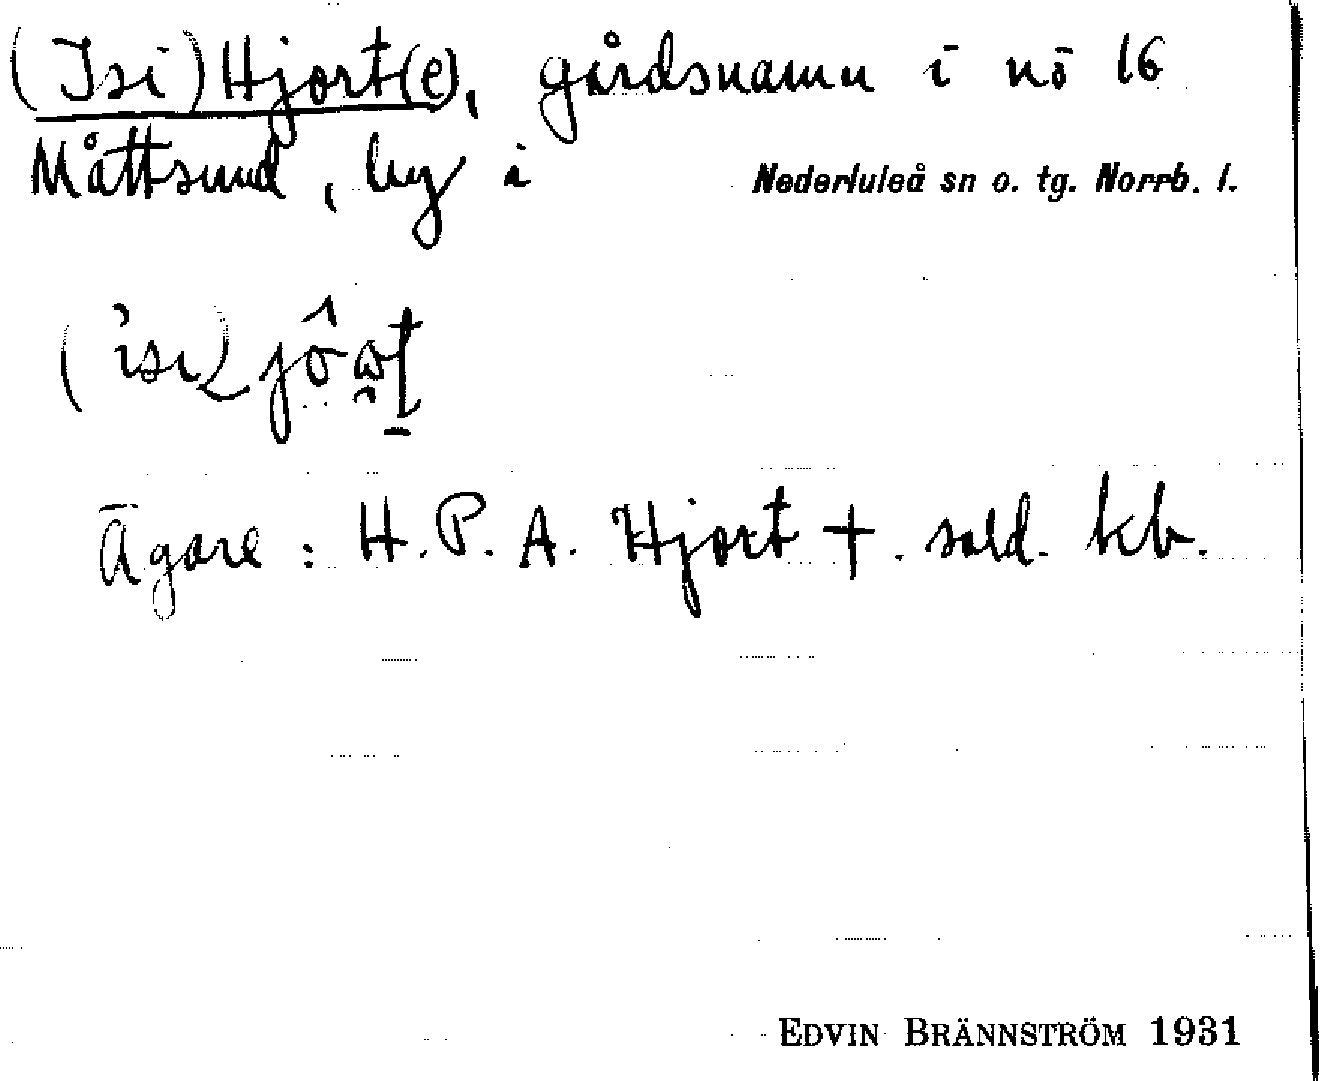 (Isi) Hjort(e), gårdsnamn i nö 16
Måttsund, by i Nederluleå sn o. tg. Norrb. l.
Ägare: H. P. A. Hjort †. sold. kb.
EDVIN BRÄNNSTRÖM 1931